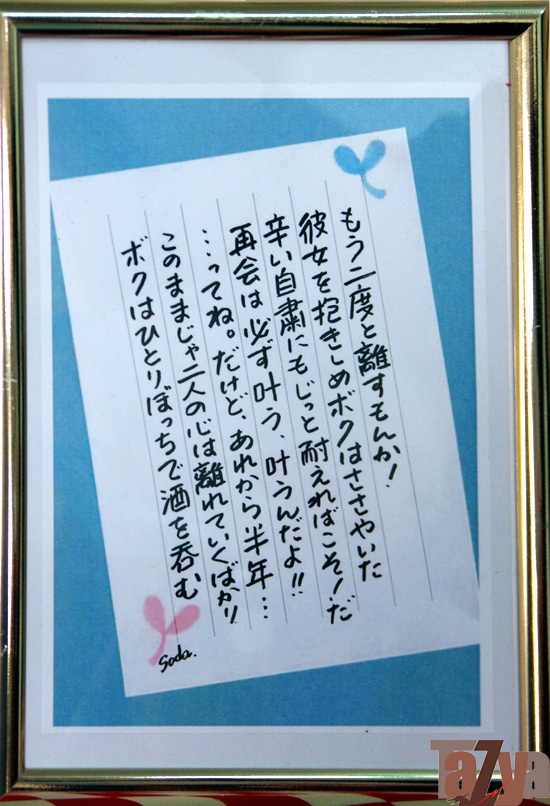 もう二度と離すもんか!
彼女を抱きしめボクはささやいた
辛い自粛にもじっと耐えればこそ!だ
再会は必ず叶う、叶うんだよ!!
…ってね。だけど、あれから半年…
このままじゃ二人の心は離れていくばかり
ボクはひとりぼっちで酒を呑む
Soda.
Ta7ya